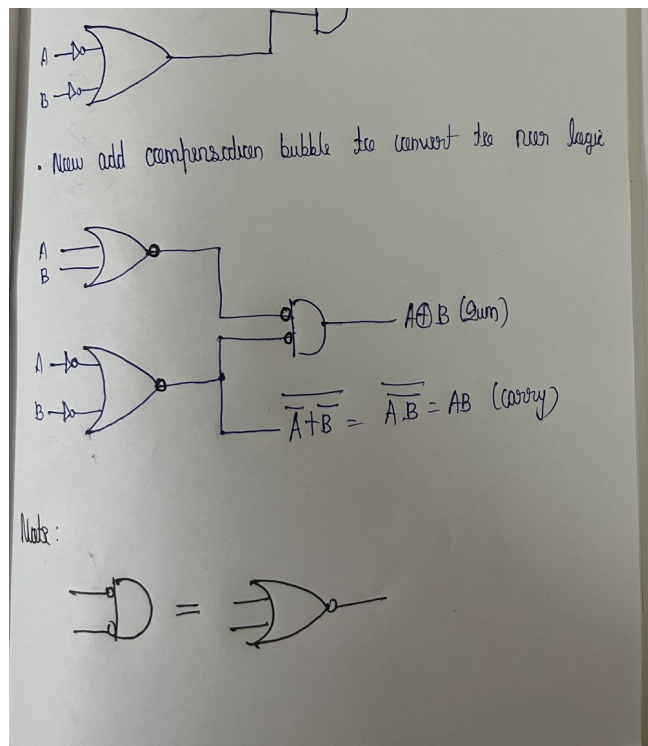 A
B
. Now add compensation bubble to convert to nor logic
A
B
A⊕B (Sum)
A
B
$\overline{\overline{A}+\overline{B}} = \overline{\overline{AB}} = AB$ (carry)
Note:
=